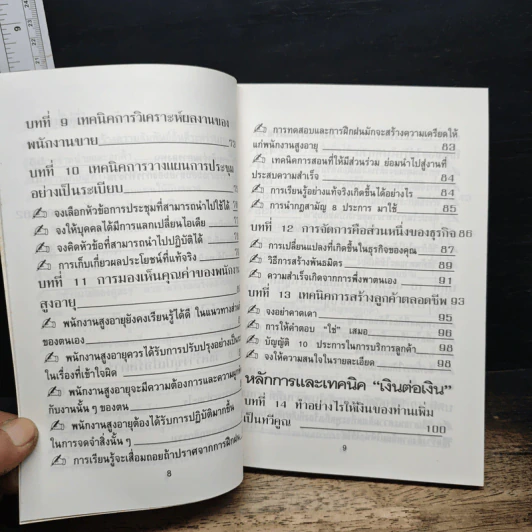 บทที่ 9 เทคนิคการวิเคราะห์ผลงานของ
พนักงานขาย
บทที่ 10 เทคนิคการวางแผนการประชุม
อย่างเป็นระเบียบ
จงเลือกหัวข้อการประชุมที่สามารถนำไปใช้ได้
จงให้บุคคลได้มีการแลกเปลี่ยนไอเดีย
จงคิดหัวข้อที่สามารถนำไปปฏิบัติได้
การเก็บเกี่ยวผลประโยชน์ที่แท้จริง
บทที่ 11 การมองเห็นคุณค่าของพนักงาน
สูงอายุ
พนักงานสูงอายุยังคงเรียนรู้ได้ดี ในแนวทางส่วน
ของตนเอง
พนักงานสูงอายุควรได้รับการปรับปรุงอย่างเป็น
ในเรื่องที่เข้าใจผิด
พนักงานสูงอายุจะมีความต้องการและความผูก
กับงานนั้น ๆ ของตน
พนักงานสูงอายุต้องได้รับการปฏิบัติมากขึ้น
ในการจดจำสิ่งนั้น ๆ
การเรียนรู้จะเสื่อมถอยถ้าปราศจากการฝึกฝน
8
การทดสอบและการฝึกฝนมักจะสร้างความเครียดให้
แก่พนักงานสูงอายุ 83
เทคนิคการสอนที่ให้มีส่วนร่วม ย่อมนำไปสู่งานที่
ประสบความสำเร็จ 84
การเรียนรู้อย่างแท้จริงเกิดขึ้นได้อย่างไร 84
การนำกฎสามัญ 8 ประการ มาใช้ 85
บทที่ 12 การจัดการคือส่วนหนึ่งของธุรกิจ 86
การเปลี่ยนแปลงที่เกิดขึ้นในธุรกิจของคุณ 87
วิธีการสร้างพันธมิตร 89
ความสำเร็จเกิดจากการพึ่งพาตนเอง 91
บทที่ 13 เทคนิคการสร้างลูกค้าตลอดชีพ 93
จงอย่าคาดเดา 95
การให้คำตอบ "ใช่" เสมอ 96
บัญญัติ 10 ประการในการบริการลูกค้า 98
จงให้ความสนใจในรายละเอียด 98
หลักการและเทคนิค "เงินต่อเงิน"
บทที่ 14 ทำอย่างไรให้เงินของท่านเพิ่ม
เป็นทวีคูณ 100
9